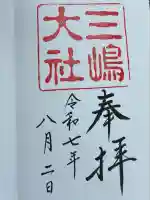 奉拝
三嶋
大社
令和七年
八月二日